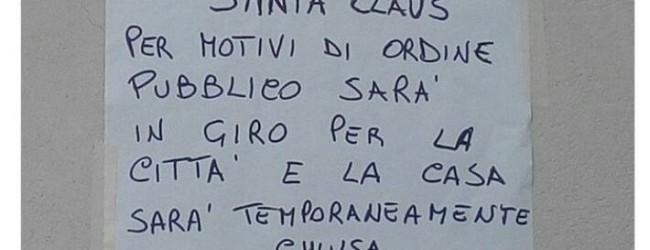 SANTA CLAUS
PER MOTIVI DI ORDINE
PUBBLICO SARA'
IN GIRO PER LA
CITTA' E LA CASA
SARA' TEMPORANEAMENTE
CHIUSA